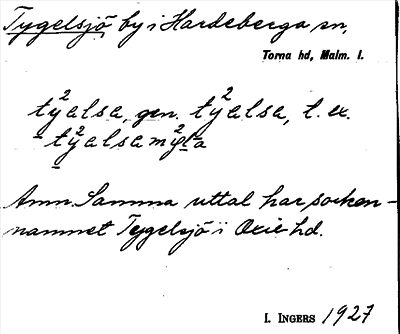 Tygelsjö, by i Hardeberga sn,
Torna hd, Malm. l.
ty²alsa, gen. ty²alsa, t. ex.
ty²alsamy²la
Anm. Samma uttal har socken-
namnet Tygelsjö i Oxie hd.
I. INGERS 1927